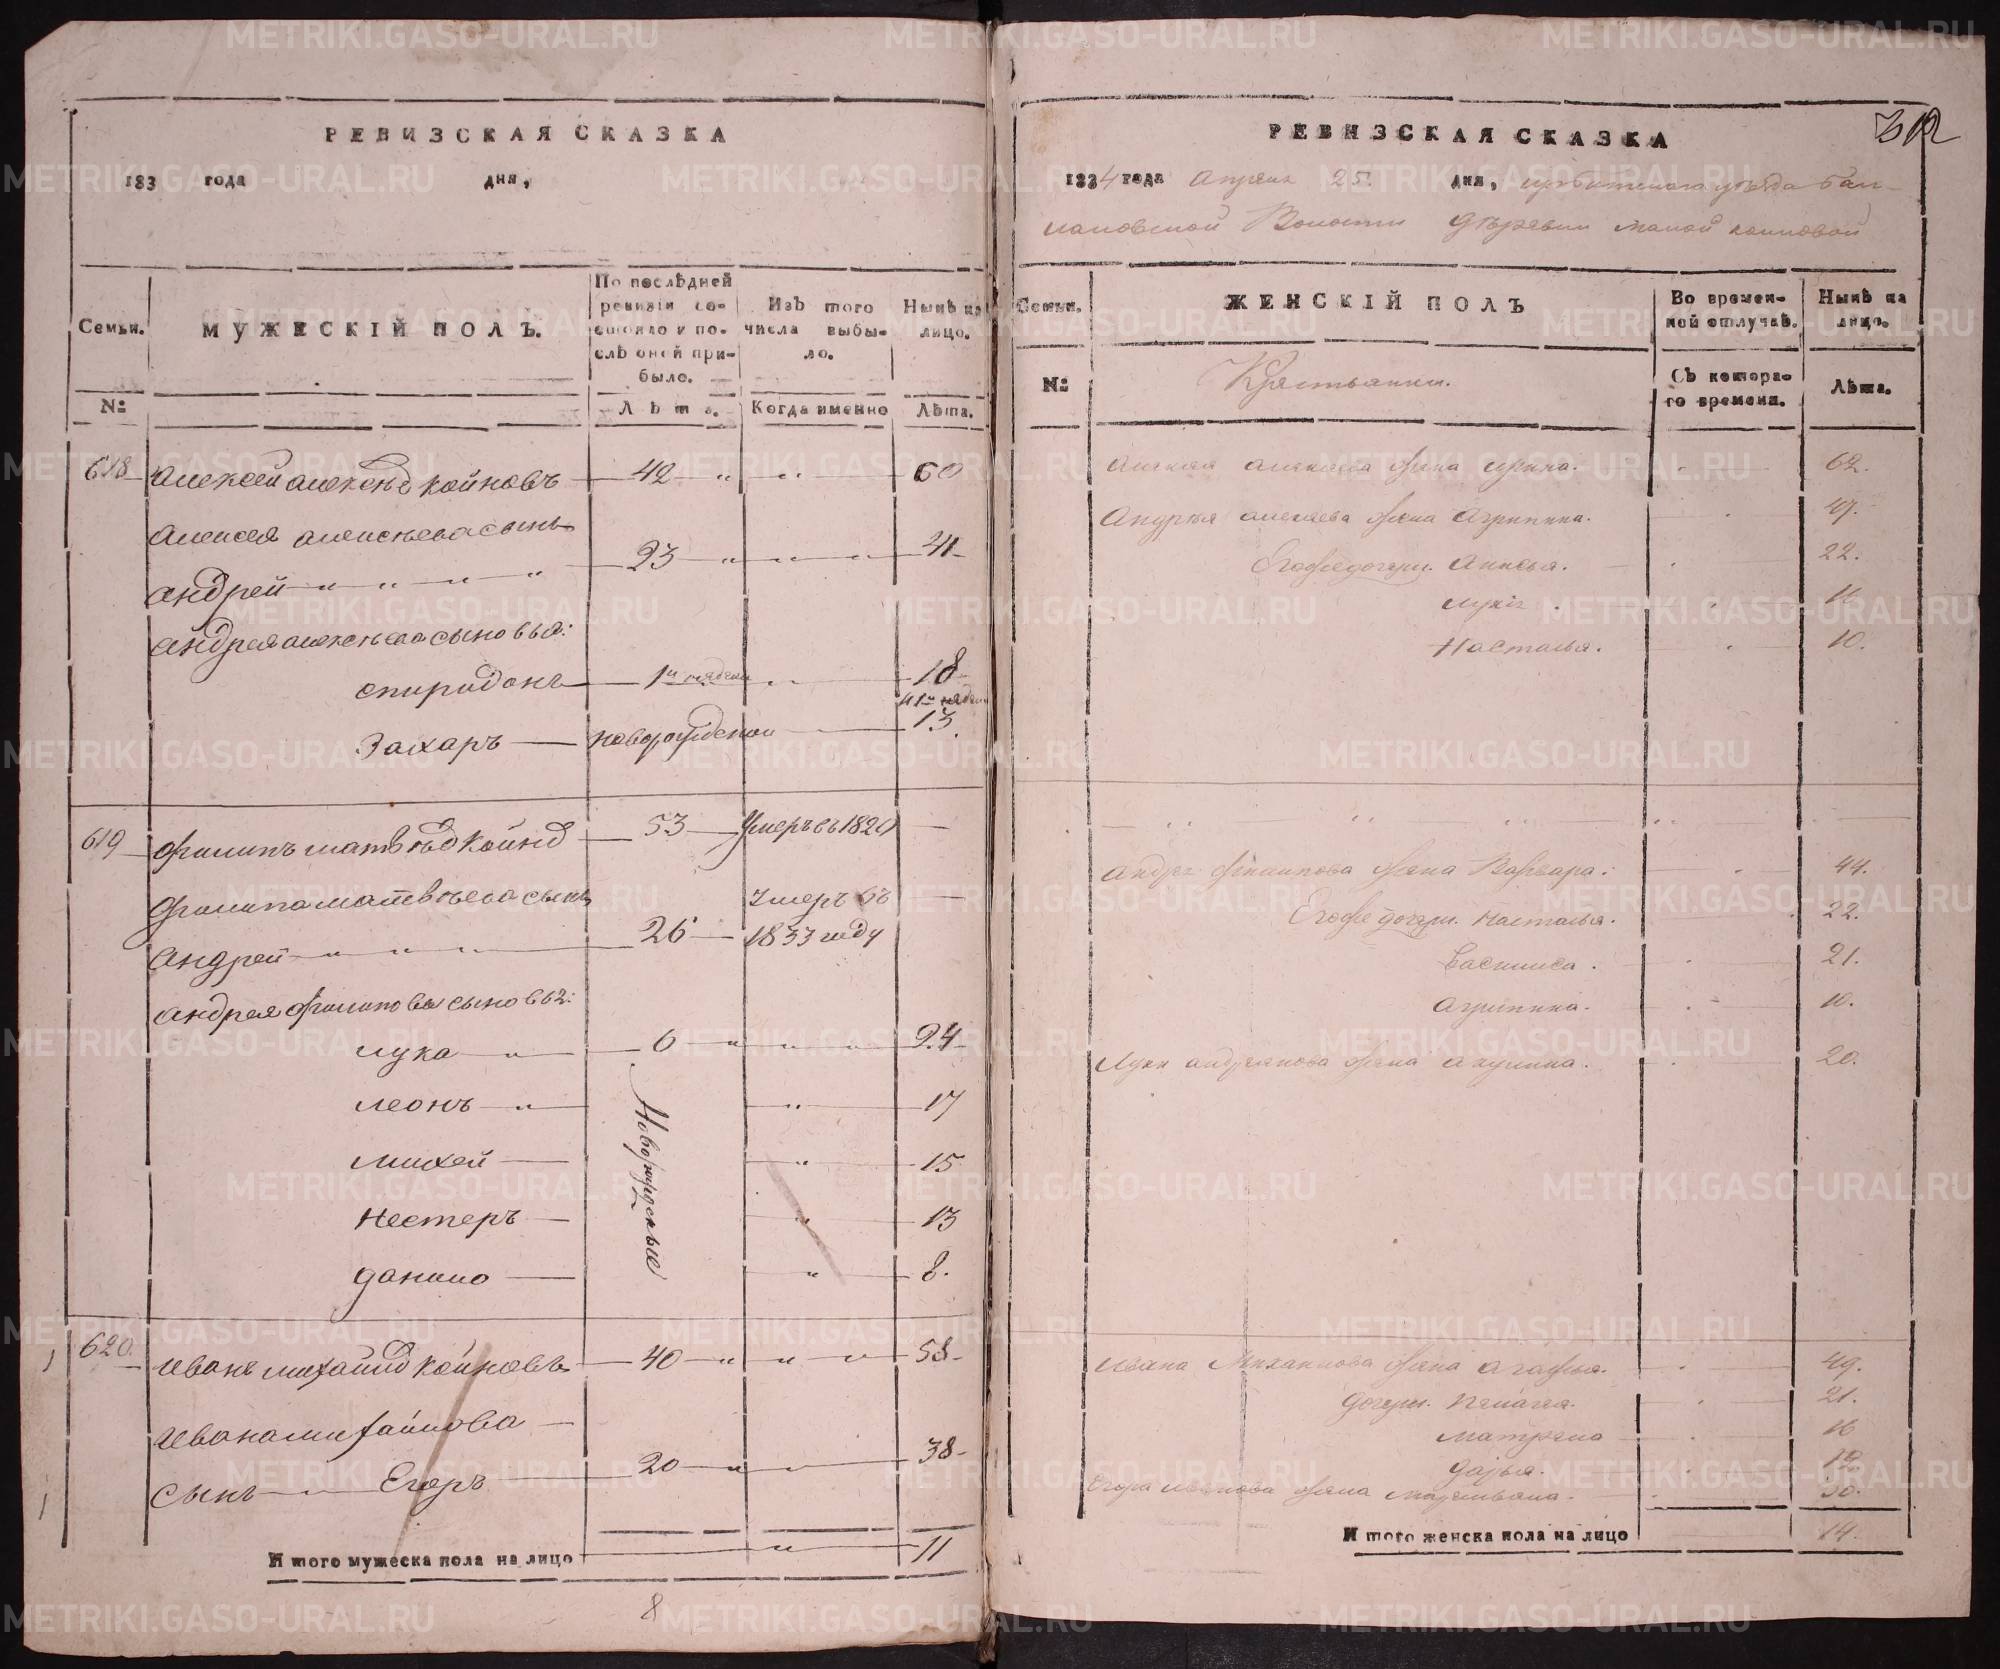 РЕВИЗСКАЯ СКАЗКА
183 года дня,
Семьи.
МУЖЕСКІЙ ПОЛЪ.
По послѣдней ревизіи состояло и послѣ оной прибыло.
Изъ того числа выбыло.
Нынѣ на лицо.
№:
Лѣта.
Когда именно
Лѣта.
618 Алексей Алексѣев Койновъ 42 " " 60
Алексея Алексѣева сынъ
Андрей " " " " 23 " " " 41
Андрея Алексѣева сыновья:
Спиридонъ 1й недели " 18
Захаръ новорожденой 13
619 Филипъ Матвѣев Койнов 53 Умеръ въ 182
Филипа Матвѣева сынъ Умеръ въ
Андрей " " " 26 1833 году
Андрея Филипова сыновьѣ:
Лука " 6 " " " 24
Новорожденые
Леонъ " " 17
Михей " 15
Нестеръ " 13
Данило " 8.
620. Иванъ Михайлов Койновъ 40 " " " 58
Ивана Михайлова
сынъ Егоръ 20 " " 38
Итого мужеска пола на лицо " 11
8
РЕВИЗСКАЯ СКАЗКА
1834 года Апреля 25 дня, Ирбитскаго уѣзда
Волости Дѣревни Малой Койновой
Семьи.
ЖЕНСКІЙ ПОЛЪ
Во временной отлучкѣ.
Нынѣ на лицо.
№:
Крестьянки.
Съ котораго времени.
Лѣта.
Алексея Алексеева жена Ирина. 62.
Андрея Алексеева жена Агрипина. 47.
Егоже дочери. Анисья. 22.
Настасья. 10.
Андрея Филипова жена Варвара. 44.
Егоже дочери. Настасья. 22.
Василиса. 21.
Агрипина. 10.
Луки Андреянова жена Акулина. 20.
Ивана Михаилова жена Агафья. 49.
дочери. Пелагея. 21.
Матрена 16
Дарья.
Егора Иванова жена Маремьяна. 30.
Итого женска пола на лицо 14.
METRIKI.GASO-URAL.RU